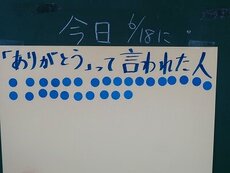 今日 6/18に
「ありがとう」って言われた人